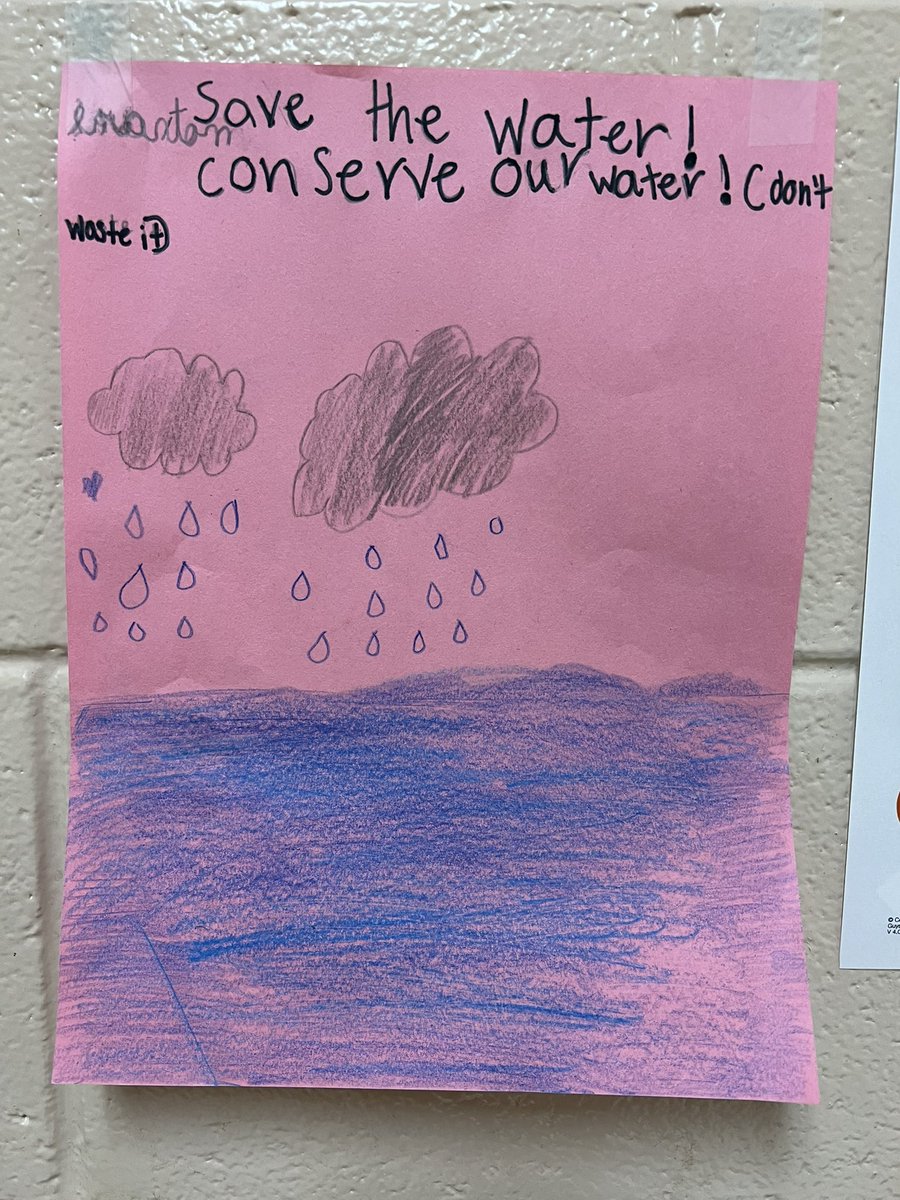 Save the water!
conserve our water! (don't
waste it)
© C
Guy
V 4.0